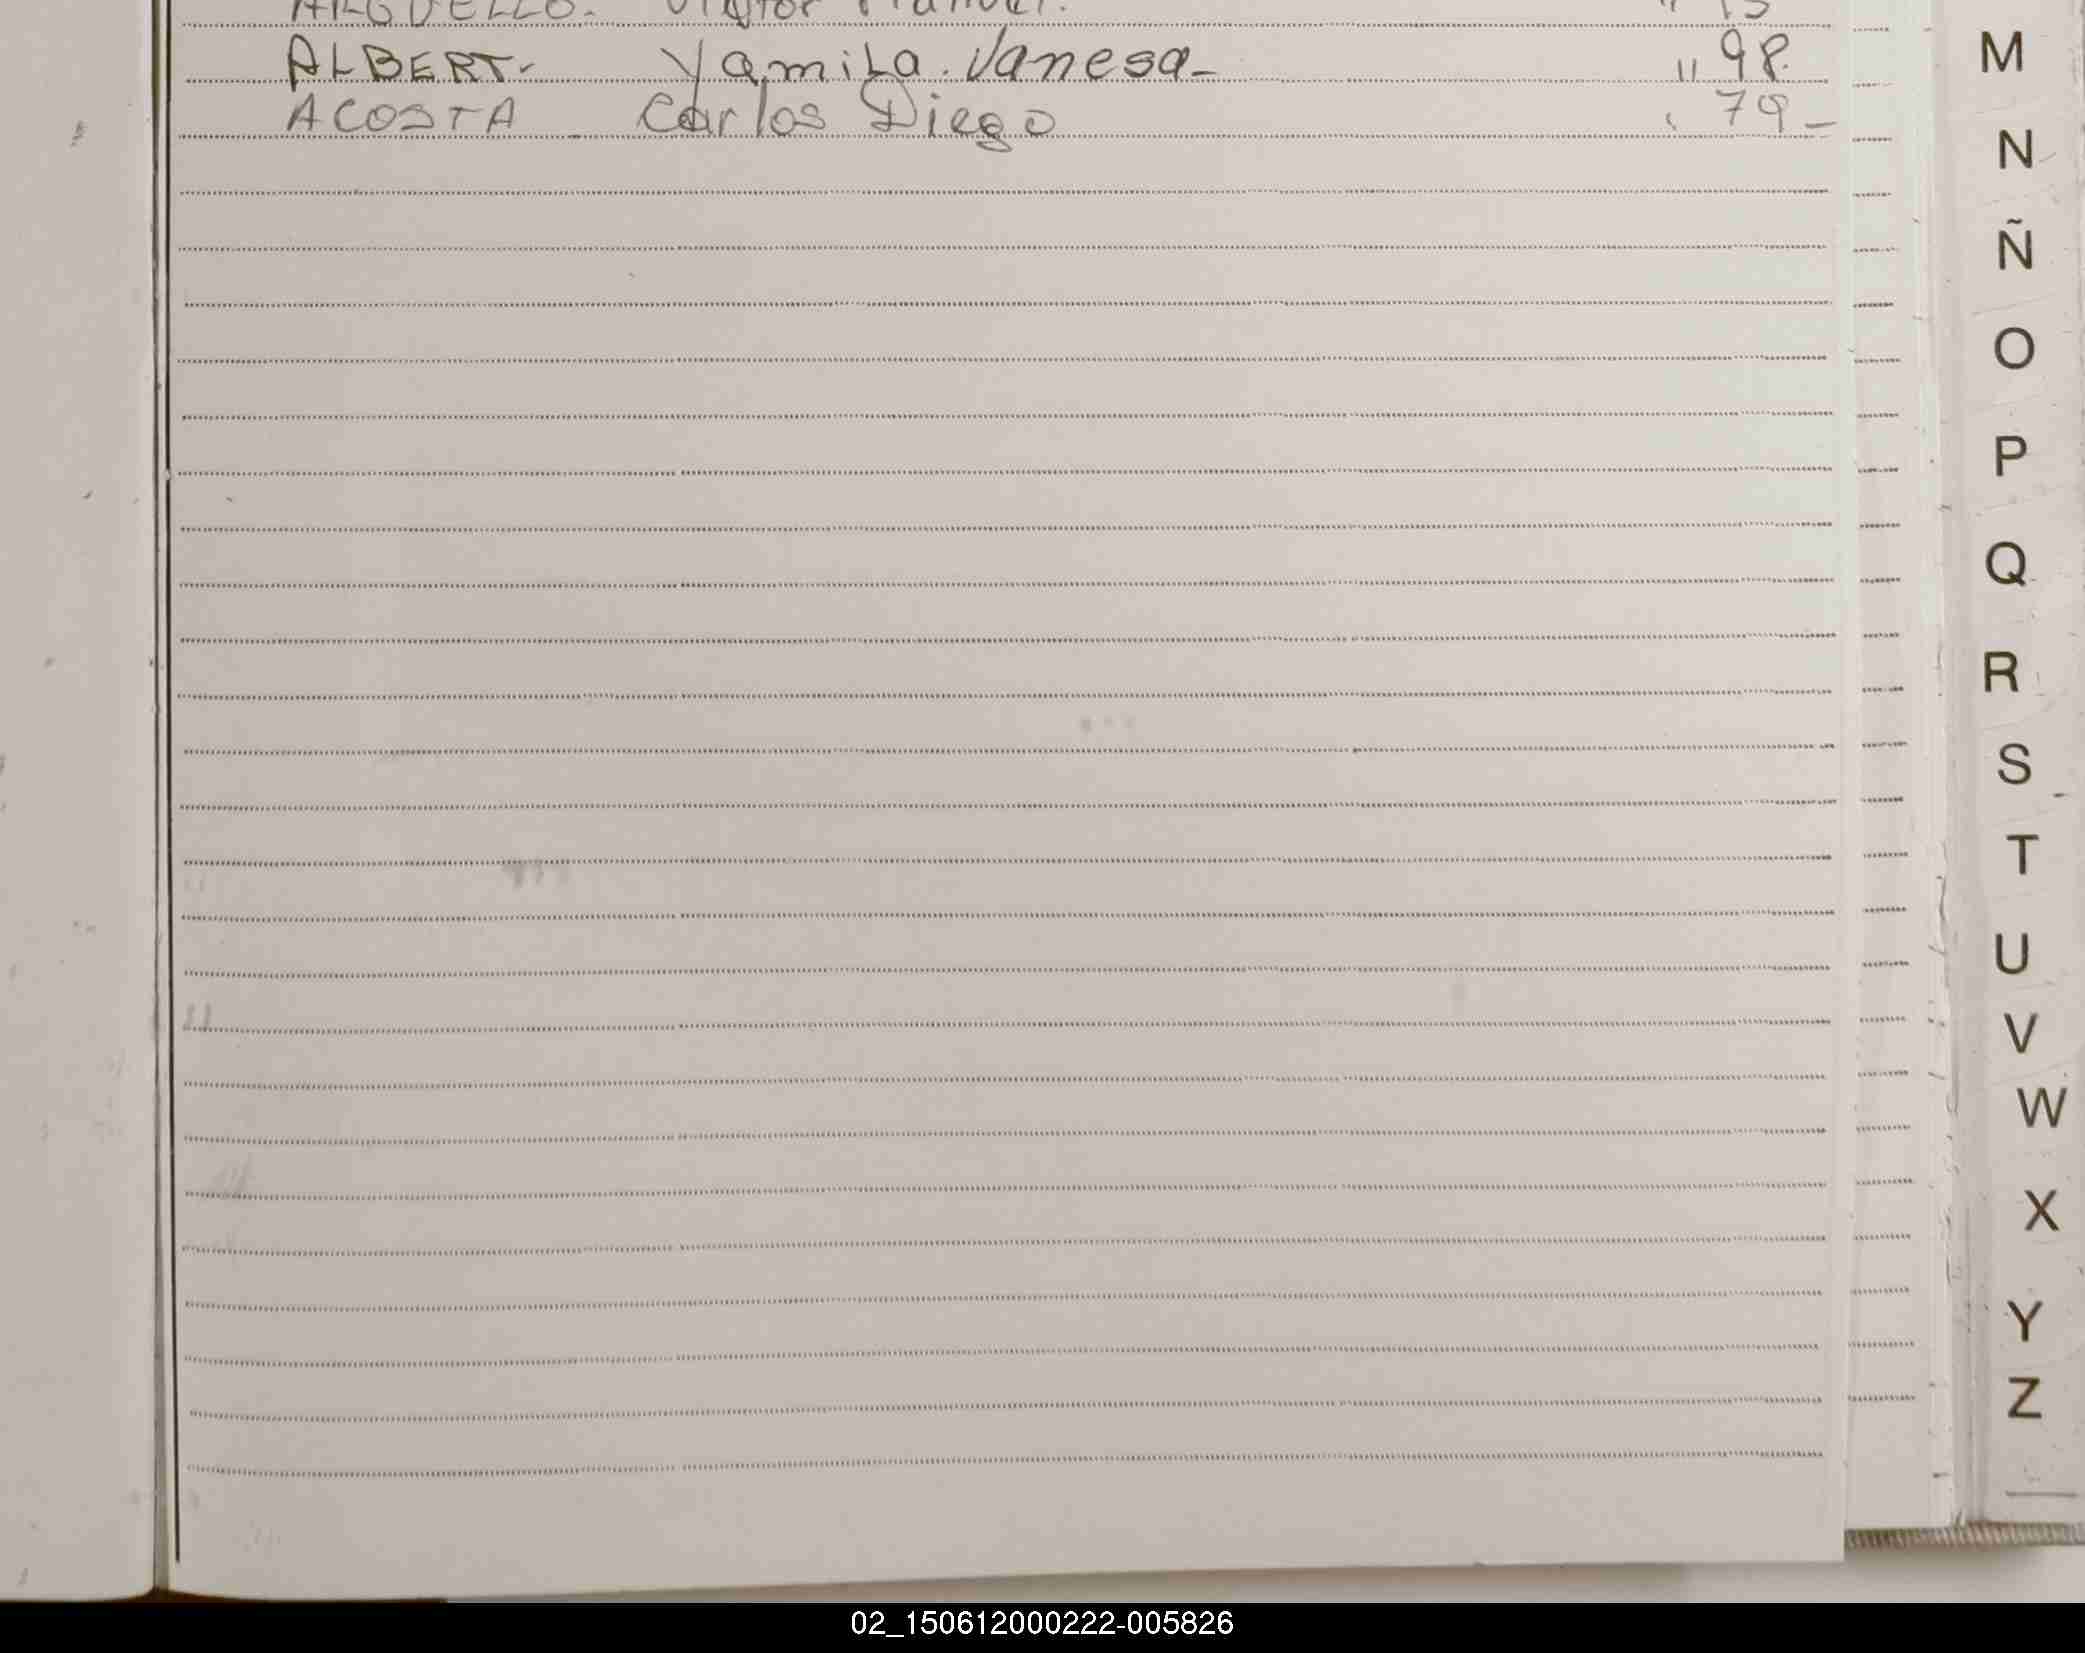 ARGUELLO. Victor Manuel. " 75
ALBERT- Yamila. Vanesa- " 98.
ACOSTA - Carlos Diego 79-
M
N
Ñ
O
P
Q
R
S
T
U
V
W
X
Y
Z
02_150612000222-005826